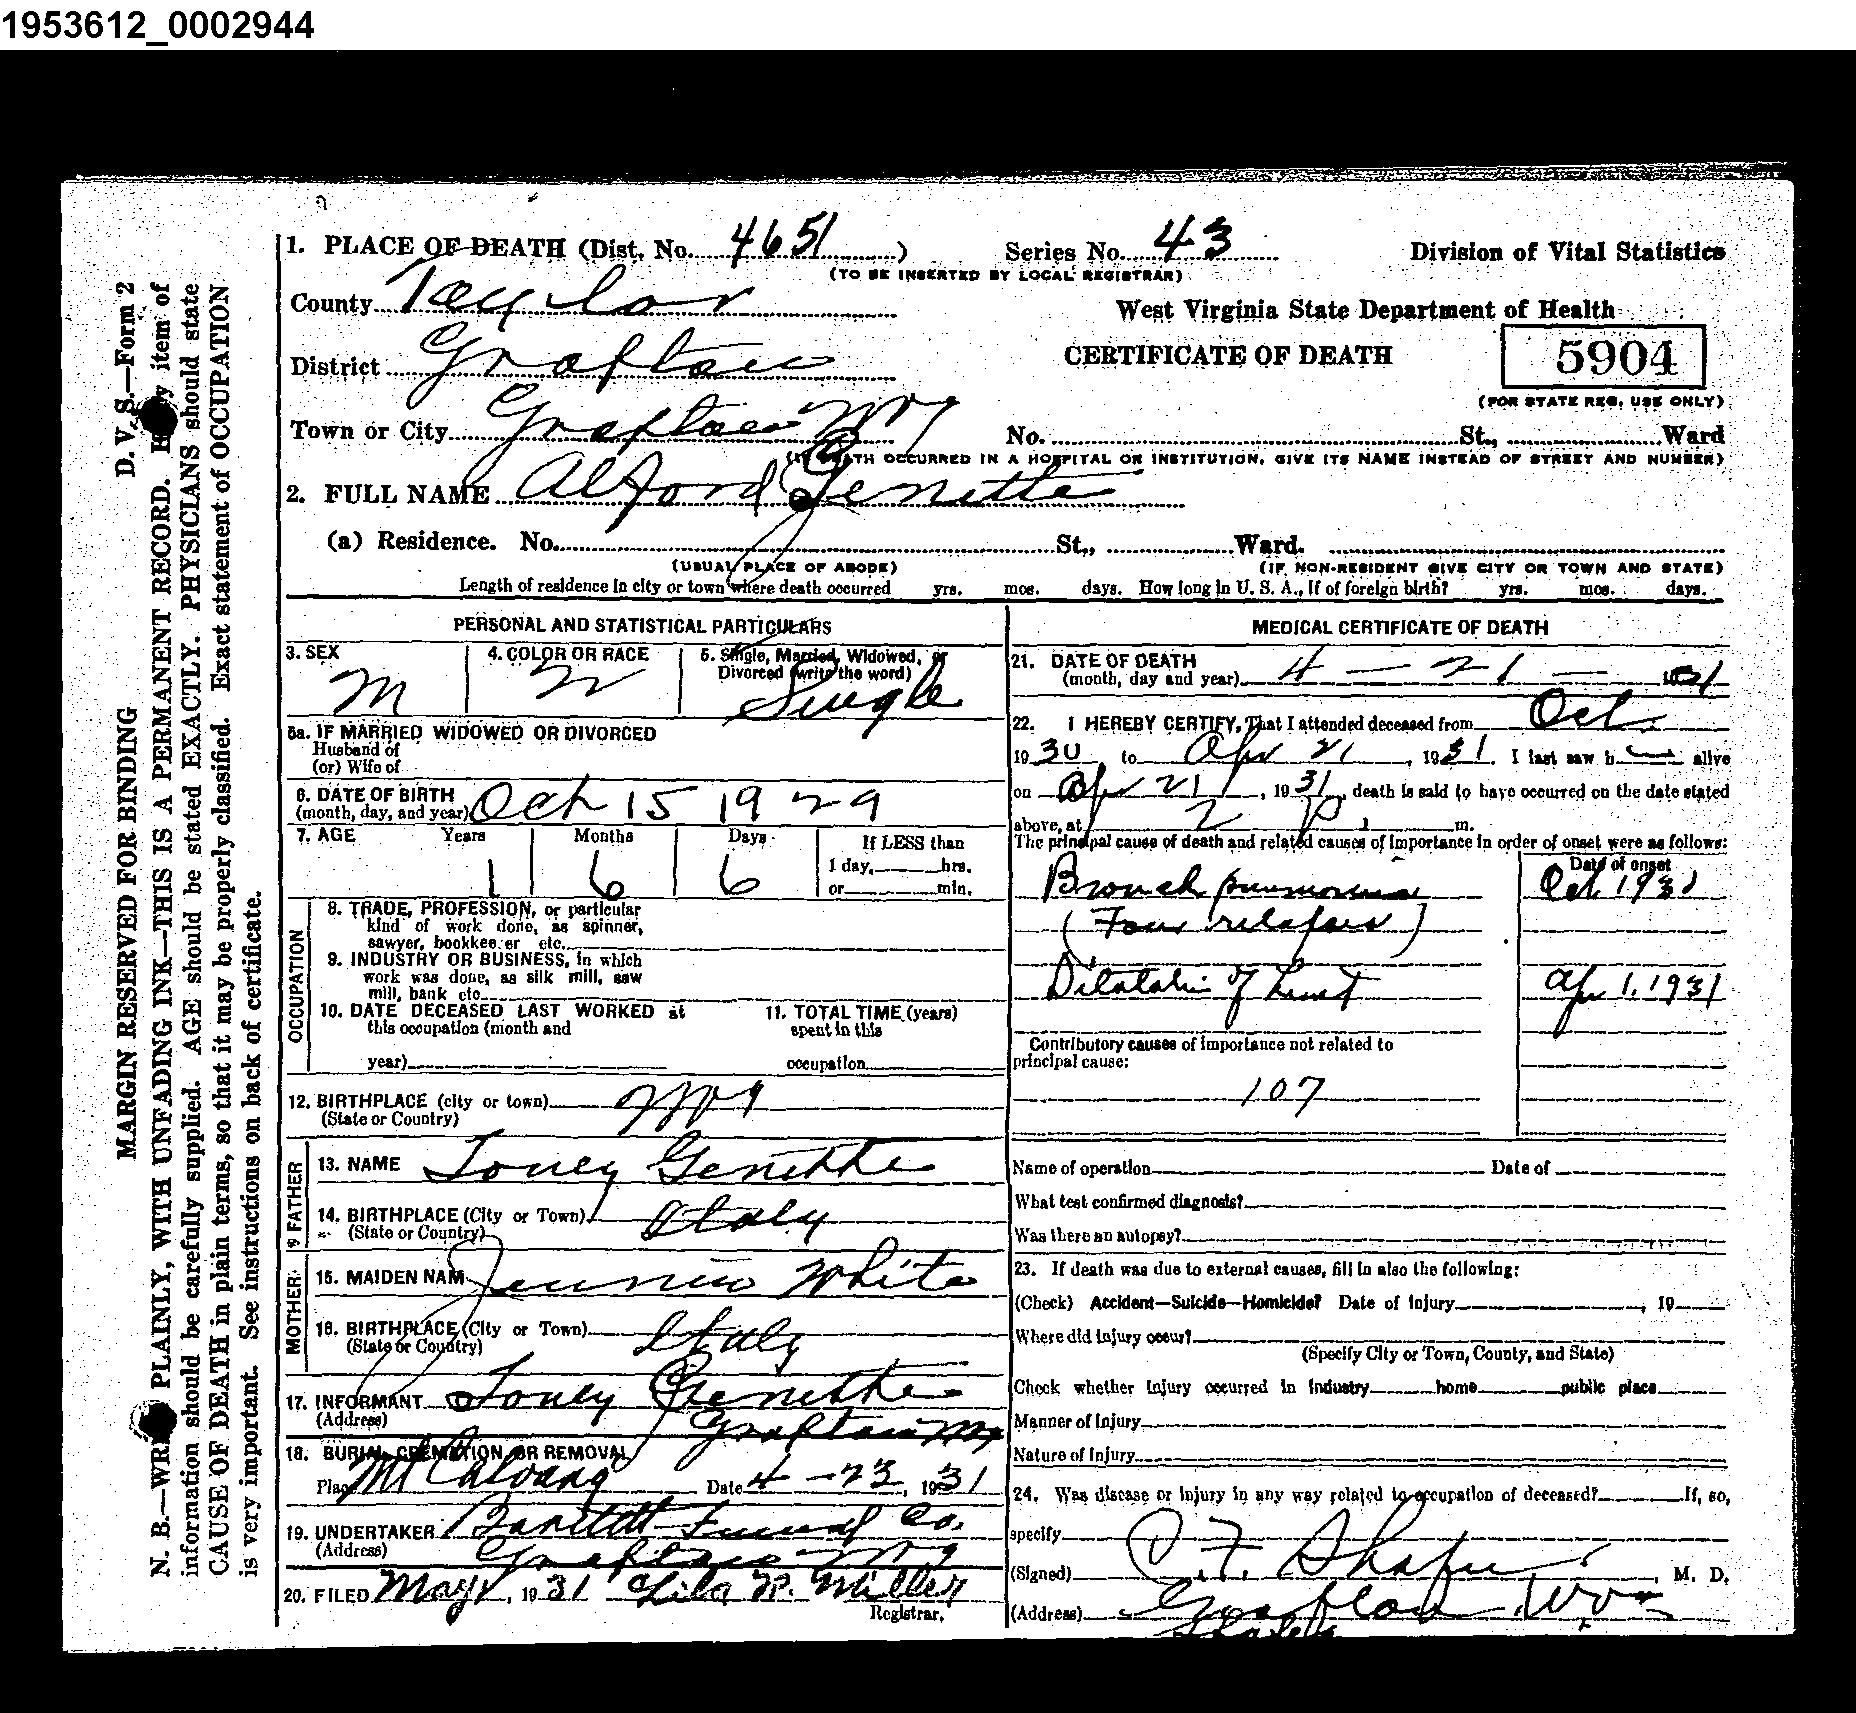 1953612_0002944
1. PLACE OF DEATH (Dist. No. 4651) Series No. 43 Division of Vital Statistics
(TO BE INSERTED BY LOCAL REGISTRAR)
County Taylor West Virginia State Department of Health
District Grafton CERTIFICATE OF DEATH 5904
(FOR STATE REG. USE ONLY)
Town or City Grafton No. St., Ward
ATH OCCURRED IN A HOSPITAL OR INSTITUTION, GIVE ITS NAME INSTEAD OF STREET AND NUMBER)
2. FULL NAME Alford Genette
(a) Residence. No. St., Ward.
(USUAL PLACE OF ABODE) (IF NON-RESIDENT GIVE CITY OR TOWN AND STATE)
Length of residence in city or town where death occurred yrs. mos. days. How long in U. S. A., if of foreign birth? yrs. mos. days.
PERSONAL AND STATISTICAL PARTICULARS
3. SEX 4. COLOR OR RACE 5. Single, Married, Widowed, or
Divorced (write the word)
M W Single
5a. IF MARRIED WIDOWED OR DIVORCED
Husband of
(or) Wife of
6. DATE OF BIRTH
(month, day, and year) Oct 15 1929
7. AGE Years Months Days If LESS than
1 day, hrs.
1 6 6 or min.
OCCUPATION
8. TRADE, PROFESSION, or particular
kind of work done, as spinner,
sawyer, bookkee er etc.
9. INDUSTRY OR BUSINESS, in which
work was done, as silk mill, saw
mill, bank etc.
10. DATE DECEASED LAST WORKED at 11. TOTAL TIME (years)
this occupation (month and spent in this
year) occupation
12. BIRTHPLACE (city or town)
(State or Country)
9 FATHER
13. NAME Toney Genette
14. BIRTHPLACE (City or Town) Italy
(State or Country)
MOTHER
15. MAIDEN NAM Jennie White
16. BIRTHPLACE (City or Town) Italy
(State or Country)
17. INFORMANT Toney Genette
(Address) Grafton
18. BURIAL CREMATION OR REMOVAL
Place Mt Calvary Date 4-23, 1931
19. UNDERTAKER Funeral Co.
(Address) Grafton
20. FILED May 1, 1931 Lila Miller
Registrar.
MEDICAL CERTIFICATE OF DEATH
21. DATE OF DEATH
(month, day and year) 4 - 21 - 1931
22. I HEREBY CERTIFY, That I attended deceased from Oct.
1930 to Apr 21, 1931. I last saw h alive
on Apr 21, 1931, death is said to have occurred on the date stated
above, at 2 P. m.
The principal cause of death and related causes of importance in order of onset were as follows:
Date of onset
Bronch pneumonia Oct 193
(Four relapses)
Dilatation of heart Apr 1, 1931
Contributory causes of importance not related to
principal cause:
107
Name of operation Date of
What test confirmed diagnosis?
Was there an autopsy?
23. If death was due to external causes, fill in also the following:
(Check) Accident—Suicide—Homicide? Date of injury , 19
Where did injury occur?
(Specify City or Town, County, and State)
Check whether injury occurred in industry home public place
Manner of Injury
Nature of Injury
24. Was disease or injury in any way related to occupation of deceased? If, so,
specify
(Signed) Shafer M. D.
(Address) Grafton
MARGIN RESERVED FOR BINDING D. V. S.—Form 2
N. B.—WRI PLAINLY, WITH UNFADING INK—THIS IS A PERMANENT RECORD. item of
information should be carefully supplied. AGE should be stated EXACTLY. PHYSICIANS should state
CAUSE OF DEATH in plain terms, so that it may be properly classified. Exact statement of OCCUPATION
is very important. See instructions on back of certificate.